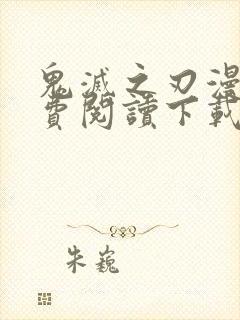 鬼滅之刃漫
費閱讀下載
朱巍